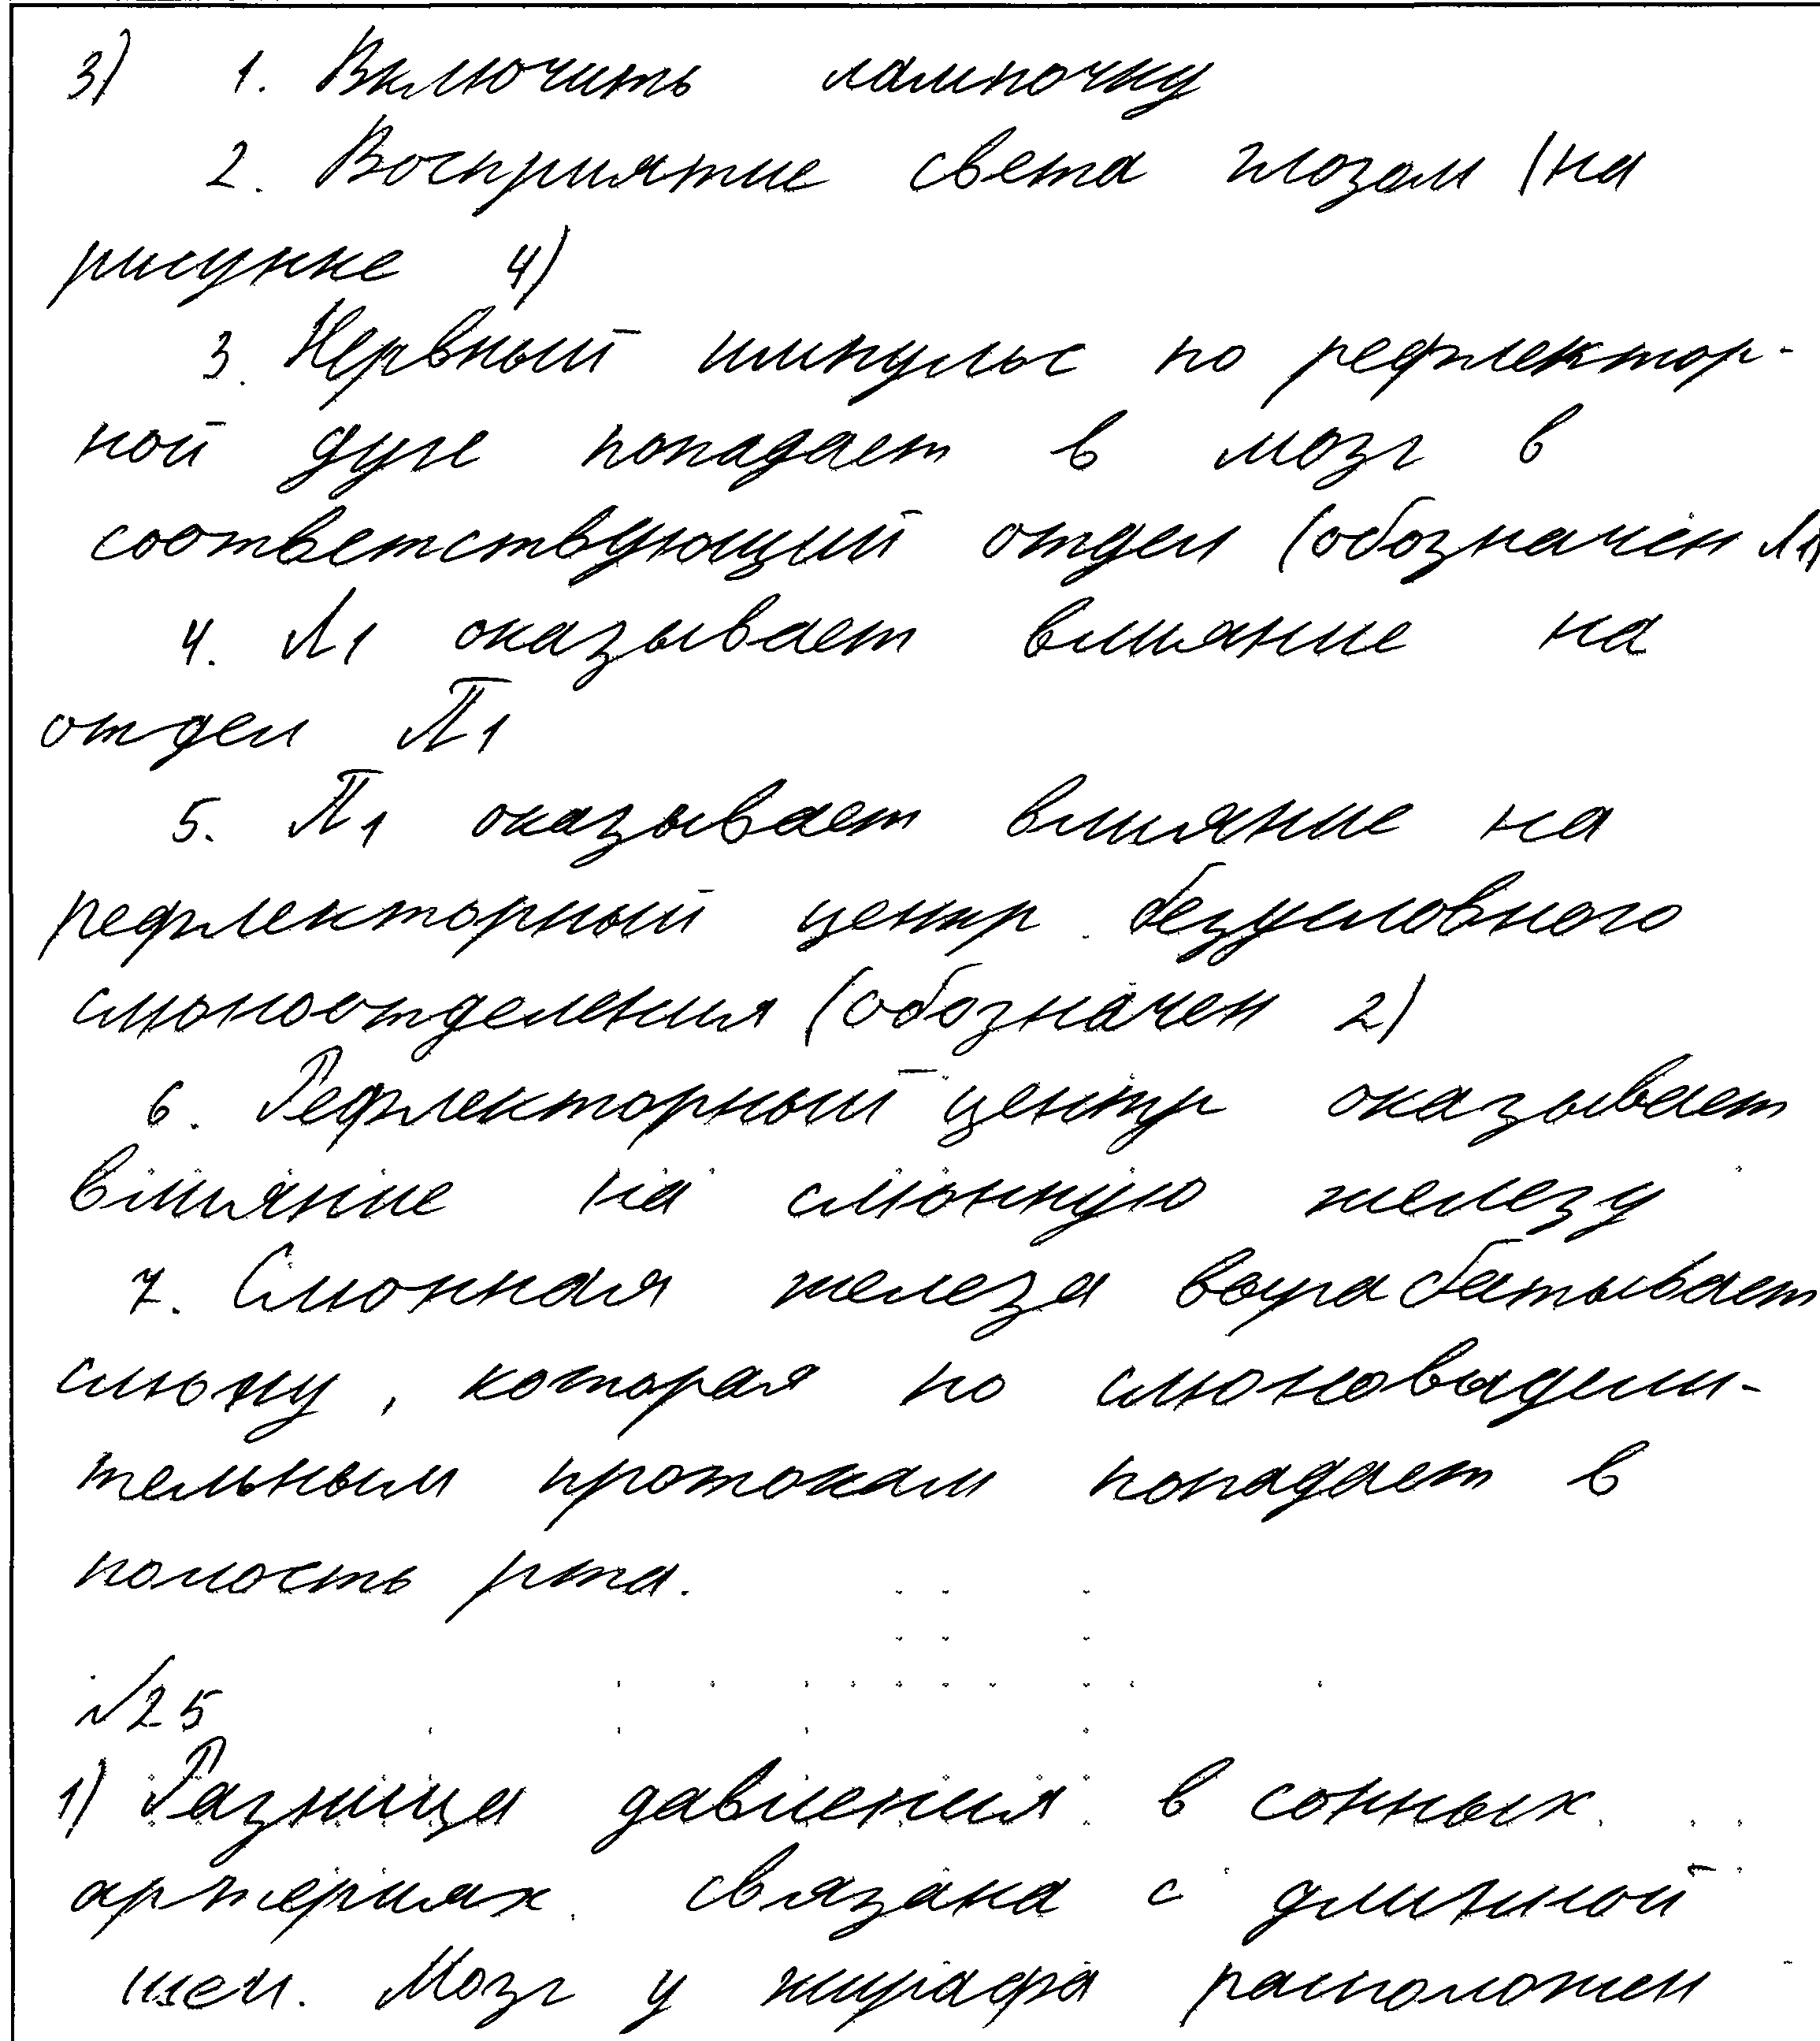 3) 1. Включить лампочку
2. Восприятие света глазом (на
рисунке 4)
3. Нервный импульс по рефлектор-
ной дуге попадает в мозг в
соответствующий отдел (обозначен Л1)
4. Л1 оказывает влияние на
отдел П1
5. П1 оказывает влияние на
рефлекторный центр безусловного
слюноотделения (обозначен 2)
6. Рефлекторный центр оказывает
влияние на слюнную железу
7. Слюнная железа вырабатывает
слюну, которая по слюновыдели-
тельным протокам попадает в
полость рта.
№25
1) Разница давления в сонных
артериях связана с длинной
шеи. Мозг у жирафа расположен